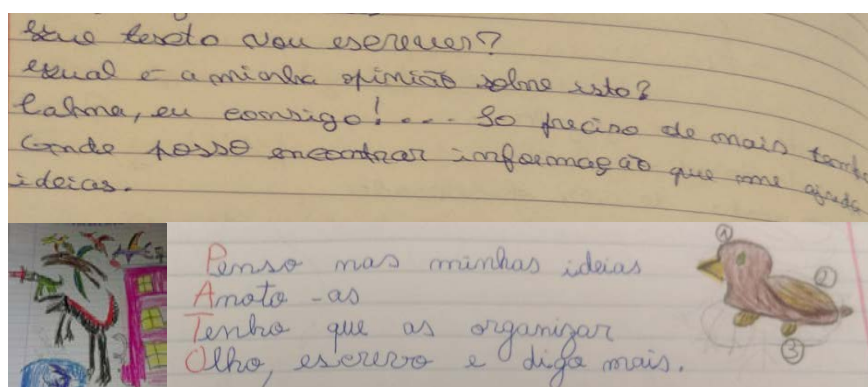 Que texto vou escrever?
Qual é a minha opinião sobre isto?
Calma, eu consigo!... Só preciso de mais tempo
Onde posso encontrar informação que me ajude
ideias.
Penso nas minhas ideias
Anoto-as
Tenho que as organizar
Olho, escrevo e digo mais.
1
2
3